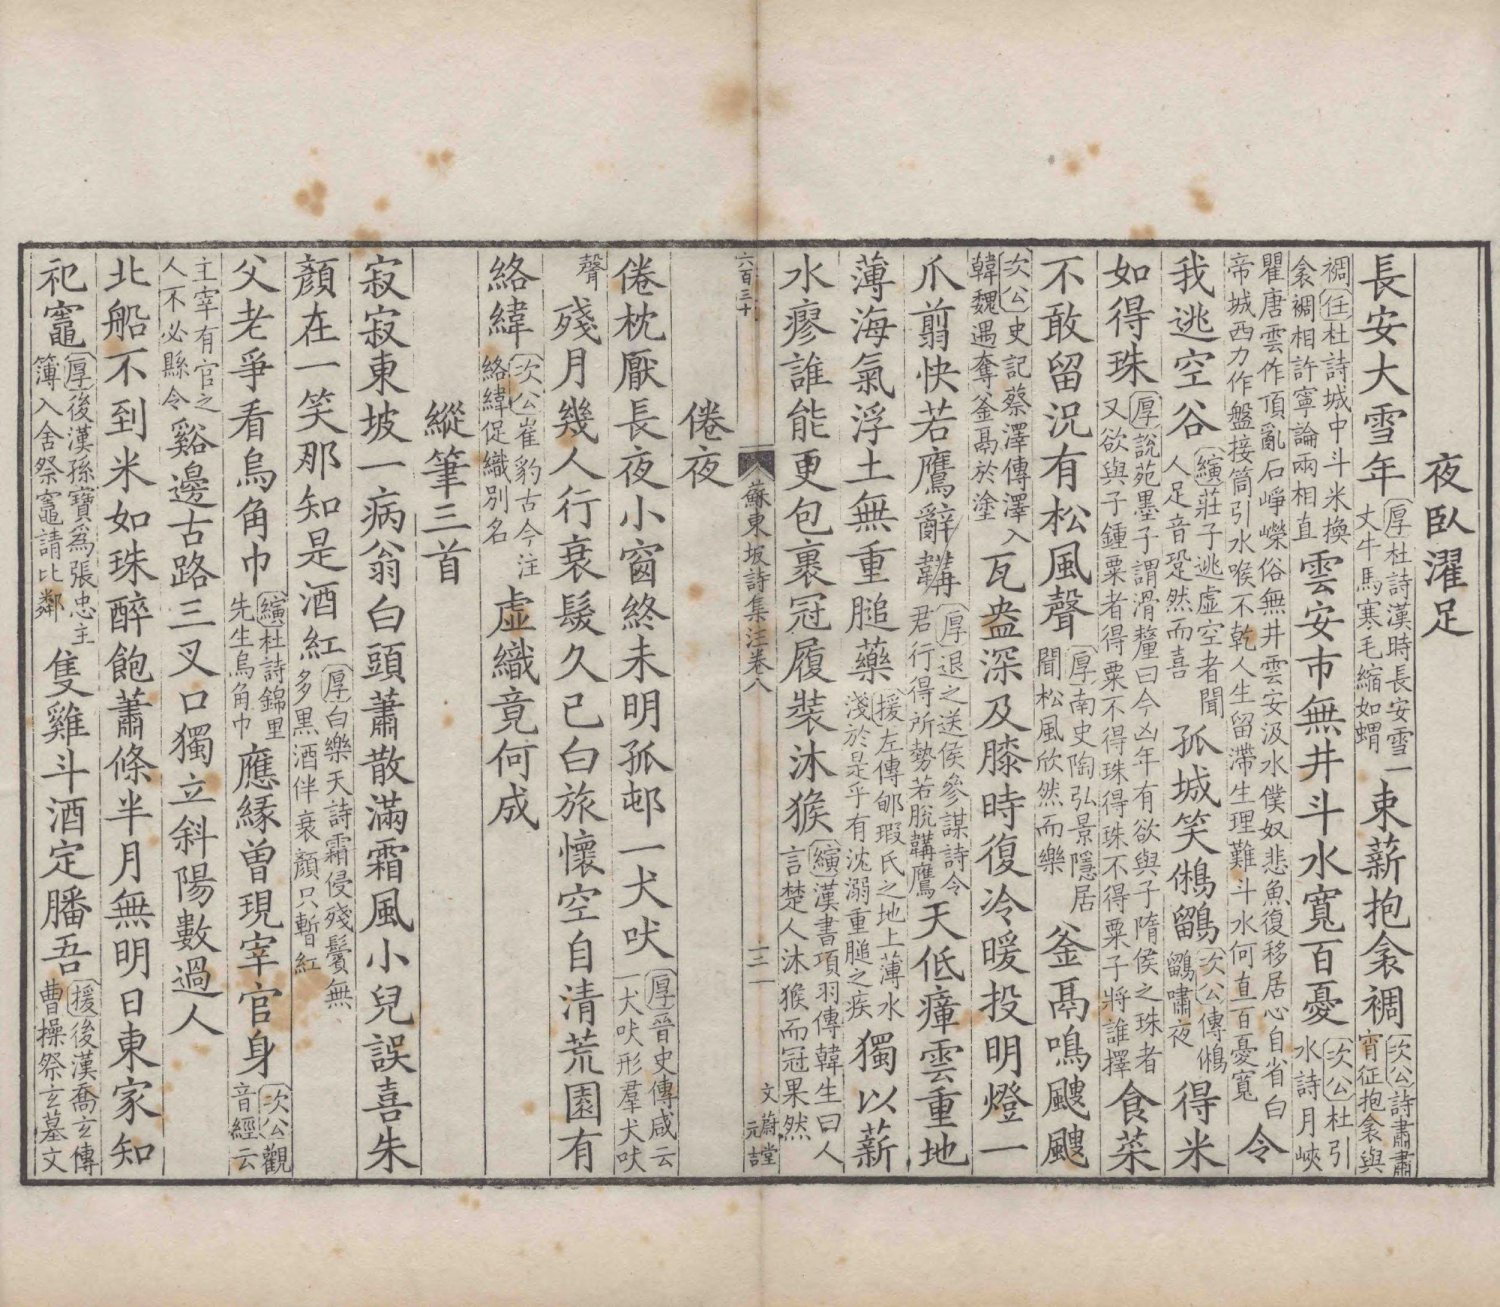 夜臥濯足
長安大雪年厚杜詩漢時長安雪一丈牛馬寒毛縮如蝟束薪抱衾裯次公詩肅肅宵征抱衾與
裯任杜詩城中斗米換衾裯相許寧論兩相直雲安市無井斗水寬百憂次公杜引水詩月峽
瞿唐雲作頂亂石崢嶸俗無井雲安汲水僕奴悲魚復移居心自省白帝城西力作盤接筒引水喉不乾人生留滯生理難斗水何直百憂寬令
我逃空谷縯莊子逃虛空者聞人足音跫然而喜孤城笑鵂鶹次公傳鵂鶹嘯夜得米
如得珠厚說苑墨子謂滑釐曰今凶年有欲與子隋侯之珠者又欲與子鍾粟者得粟不得珠得珠不得粟子將誰擇食菜
不敢留況有松風聲厚南史陶弘景隱居聞松風欣然而樂釜鬲鳴颼颼
次公史記蔡澤傳澤入韓魏遇奪釜鬲於塗瓦盎深及膝時復冷暖投明燈一
爪翦快若鷹辭韝厚退之送侯參謀詩令君行得所勢若脫韝鷹天低瘴雲重地
薄海氣浮土無重膇藥援左傳郇瑕氏之地土薄水淺於是乎有沈溺重膇之疾獨以薪
水瘳誰能更包裹冠履裝沐猴縯漢書項羽傳韓生曰人言楚人沐猴而冠果然
六百三十 蘇東坡詩集注卷八 三一 文蔚堂 元喆
倦夜
倦枕厭長夜小窗終未明孤邨一犬吠厚晉史傳咸云一犬吠形羣犬吠
聲殘月幾人行衰髮久已白旅懷空自清荒園有
絡緯次公崔豹古今注絡緯促織別名虛織竟何成
縱筆三首
寂寂東坡一病翁白頭蕭散滿霜風小兒誤喜朱
顏在一笑那知是酒紅厚白樂天詩霜侵殘鬢無多黑酒伴衰顏只暫紅
父老爭看烏角巾縯杜詩錦里先生烏角巾應緣曾現宰官身次公觀音經云
主宰有官之人不必縣令谿邊古路三叉口獨立斜陽數過人
北船不到米如珠醉飽蕭條半月無明日東家知
祀竈厚後漢孫寶為張忠主簿入舍祭竈請比鄰隻雞斗酒定膰吾援後漢喬玄傳曹操祭玄墓文